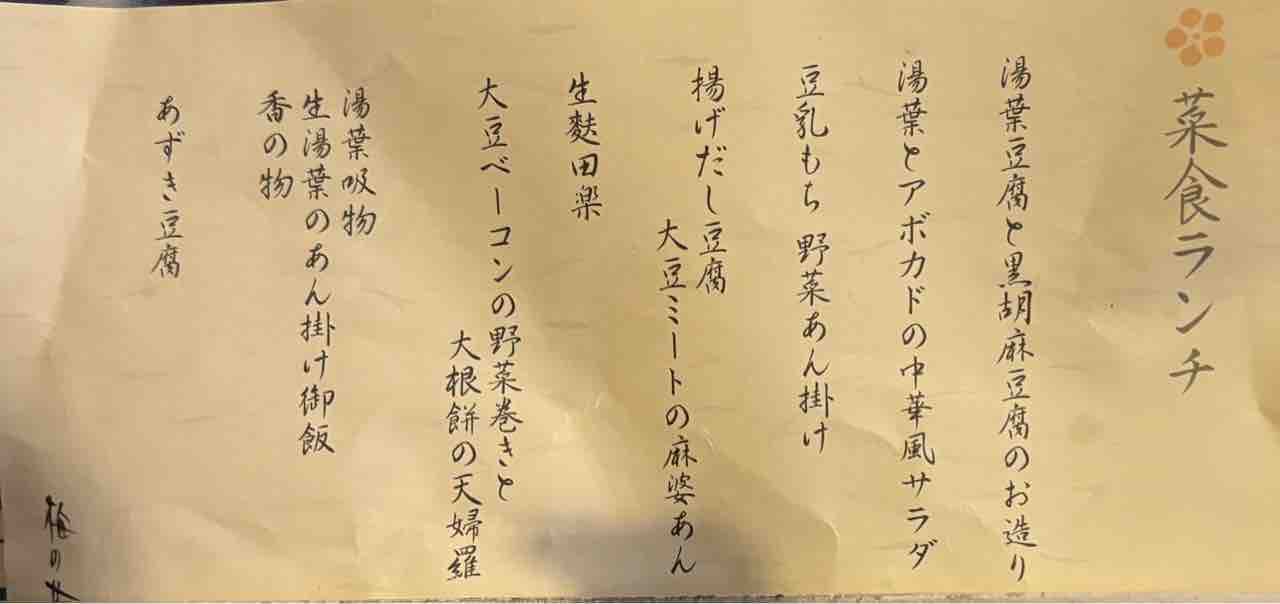 菜食ランチ
湯葉豆腐と黒胡麻豆腐のお造り
湯葉とアボカドの中華風サラダ
豆乳もち 野菜あん掛け
揚げだし豆腐
大豆ミートの麻婆あん
生麩田楽
大豆ベーコンの野菜巻きと
大根餅の天婦羅
湯葉吸物
生湯葉のあん掛け御飯
香の物
あずき豆腐
梅の